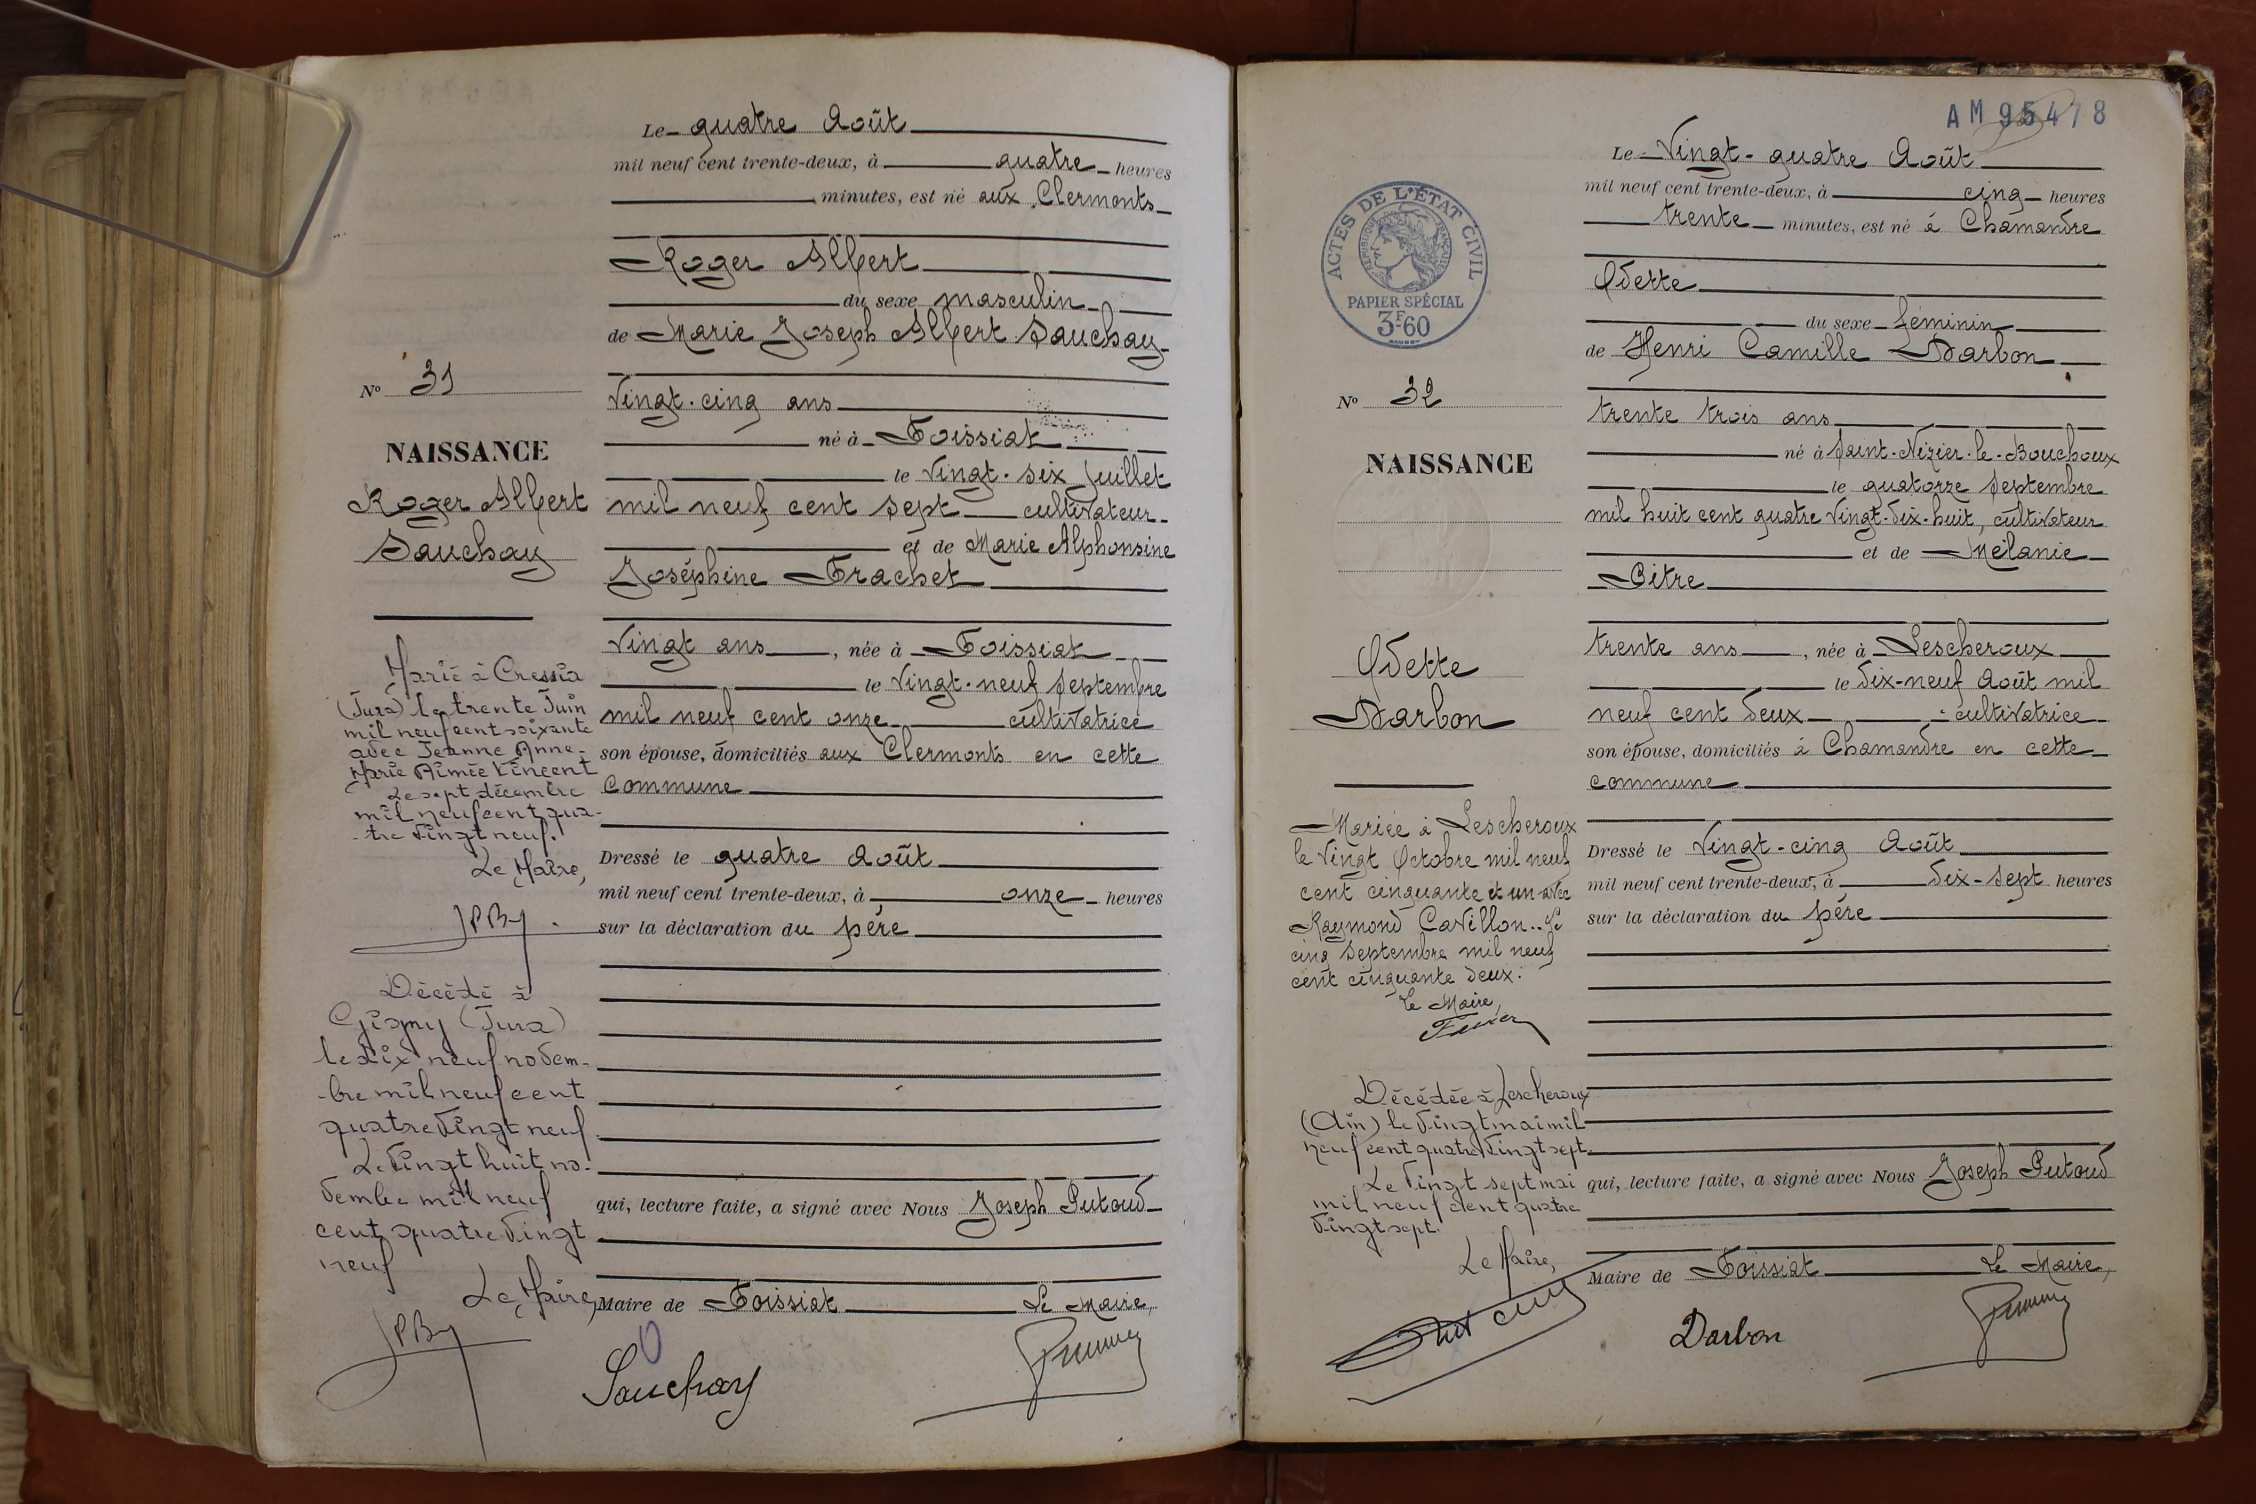 Le quatre Août
mil neuf cent trente-deux, à quatre heures
minutes, est né aux Clermonts
Roger Albert
du sexe masculin
de Marie Joseph Albert Sauchay
Vingt-cinq ans
né à Foissiat
le Vingt-six Juillet
mil neuf cent sept cultivateur
et de Marie Alphonsine
Joséphine Frachet
Vingt ans, née à Foissiat
le Vingt-neuf Septembre
mil neuf cent onze cultivatrice
son épouse, domiciliés aux Clermonts en cette
commune
Dressé le quatre Août
mil neuf cent trente-deux, à onze heures
sur la déclaration du père
qui, lecture faite, a signé avec Nous Joseph Putoud
Maire de Foissiat Le Maire,
Sauchay
No 31
NAISSANCE
Roger Albert
Sauchay
Marié à Cressia
(Jura) le trente Juin
mil neuf cent soixante
avec Jeanne Anne-
Marie Aimée Vincent
Le sept décembre
mil neuf cent qua-
-tre vingt neuf.
Le Maire,
Décédé à
Gigny (Jura)
le dix neuf novem-
-bre mil neuf cent
quatre vingt neuf
Le vingt huit no-
vembre mil neuf
cent quatre vingt
neuf
Le Maire,
AM 95478
ACTES DE L'ÉTAT CIVIL
RÉPUBLIQUE FRANÇAISE
PAPIER SPÉCIAL
3F60
Le Vingt-quatre Août
mil neuf cent trente-deux, à cinq heures
trente minutes, est né à Chamandre
Odette
du sexe féminin
de Henri Camille Darbon
trente trois ans
né à Saint-Nizier-le-Bouchoux
le quatorze Septembre
mil huit cent quatre vingt-dix-huit, cultivateur
et de Mélanie
Bitre
trente ans, née à Lescheroux
le dix-neuf Août mil
neuf cent deux cultivatrice
son épouse, domiciliés à Chamandre en cette
commune
Dressé le Vingt-cinq Août
mil neuf cent trente-deux, à dix-sept heures
sur la déclaration du père
qui, lecture faite, a signé avec Nous Joseph Putoud
Maire de Foissiat Le Maire,
Darbon
No 32
NAISSANCE
Odette
Darbon
Mariée à Lescheroux
le Vingt Octobre mil neuf
cent cinquante et un avec
Raymond Cavillon.. Le
cinq Septembre mil neuf
cent cinquante deux.
Le Maire,
Décédée à Lescheroux
(Ain) le vingt mai mil
neuf cent quatre vingt sept.
Le vingt sept mai
mil neuf cent quatre
vingt sept.
Le Maire,